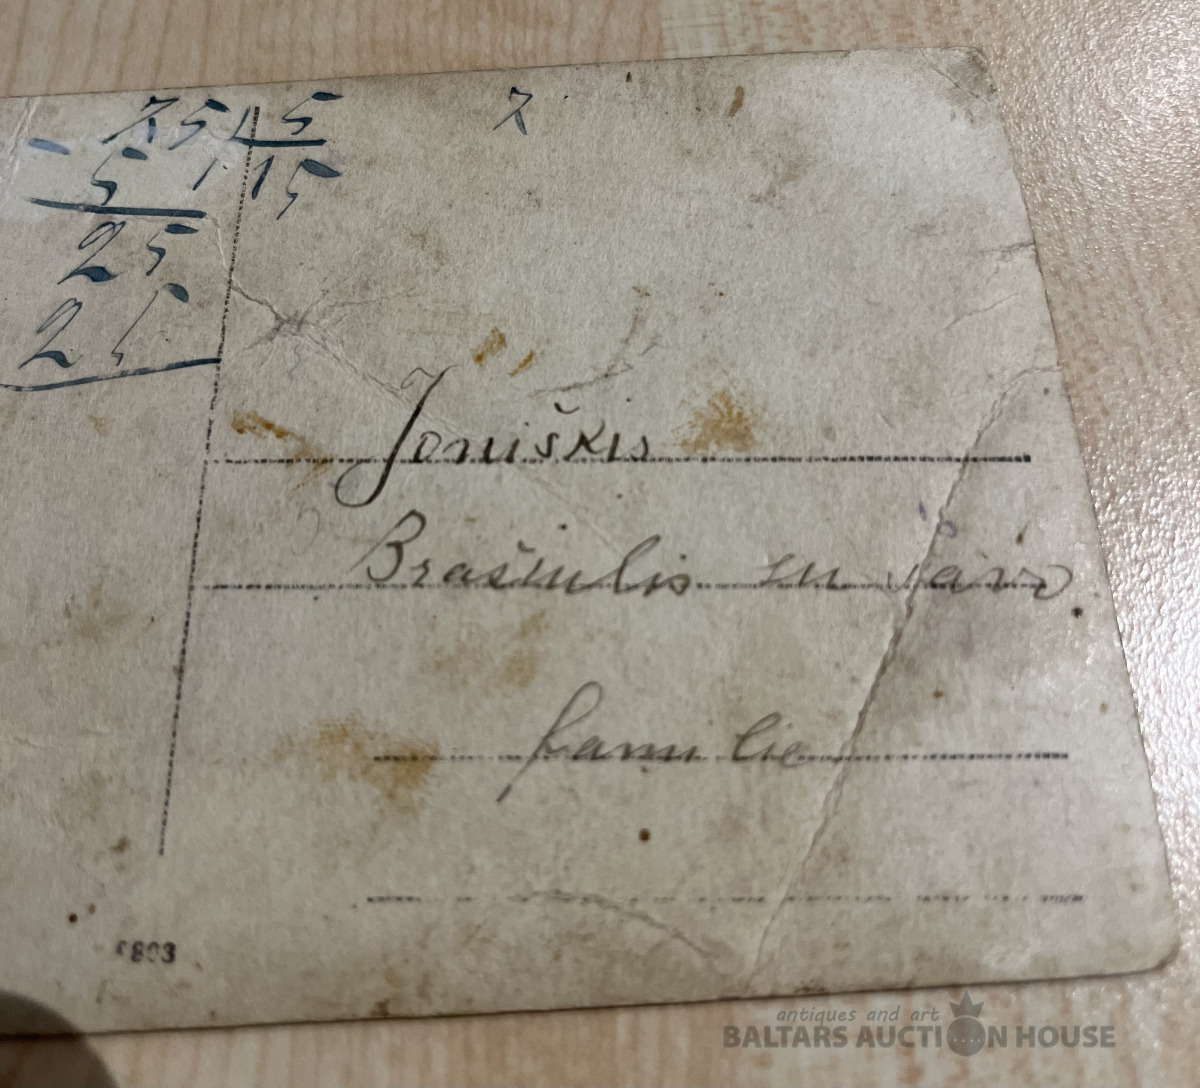 75 | 5
- 5 | 15
25
25
7
Joniškis
Brašiulis su savo
familie
antiques and art
BALTARS AUCTION HOUSE